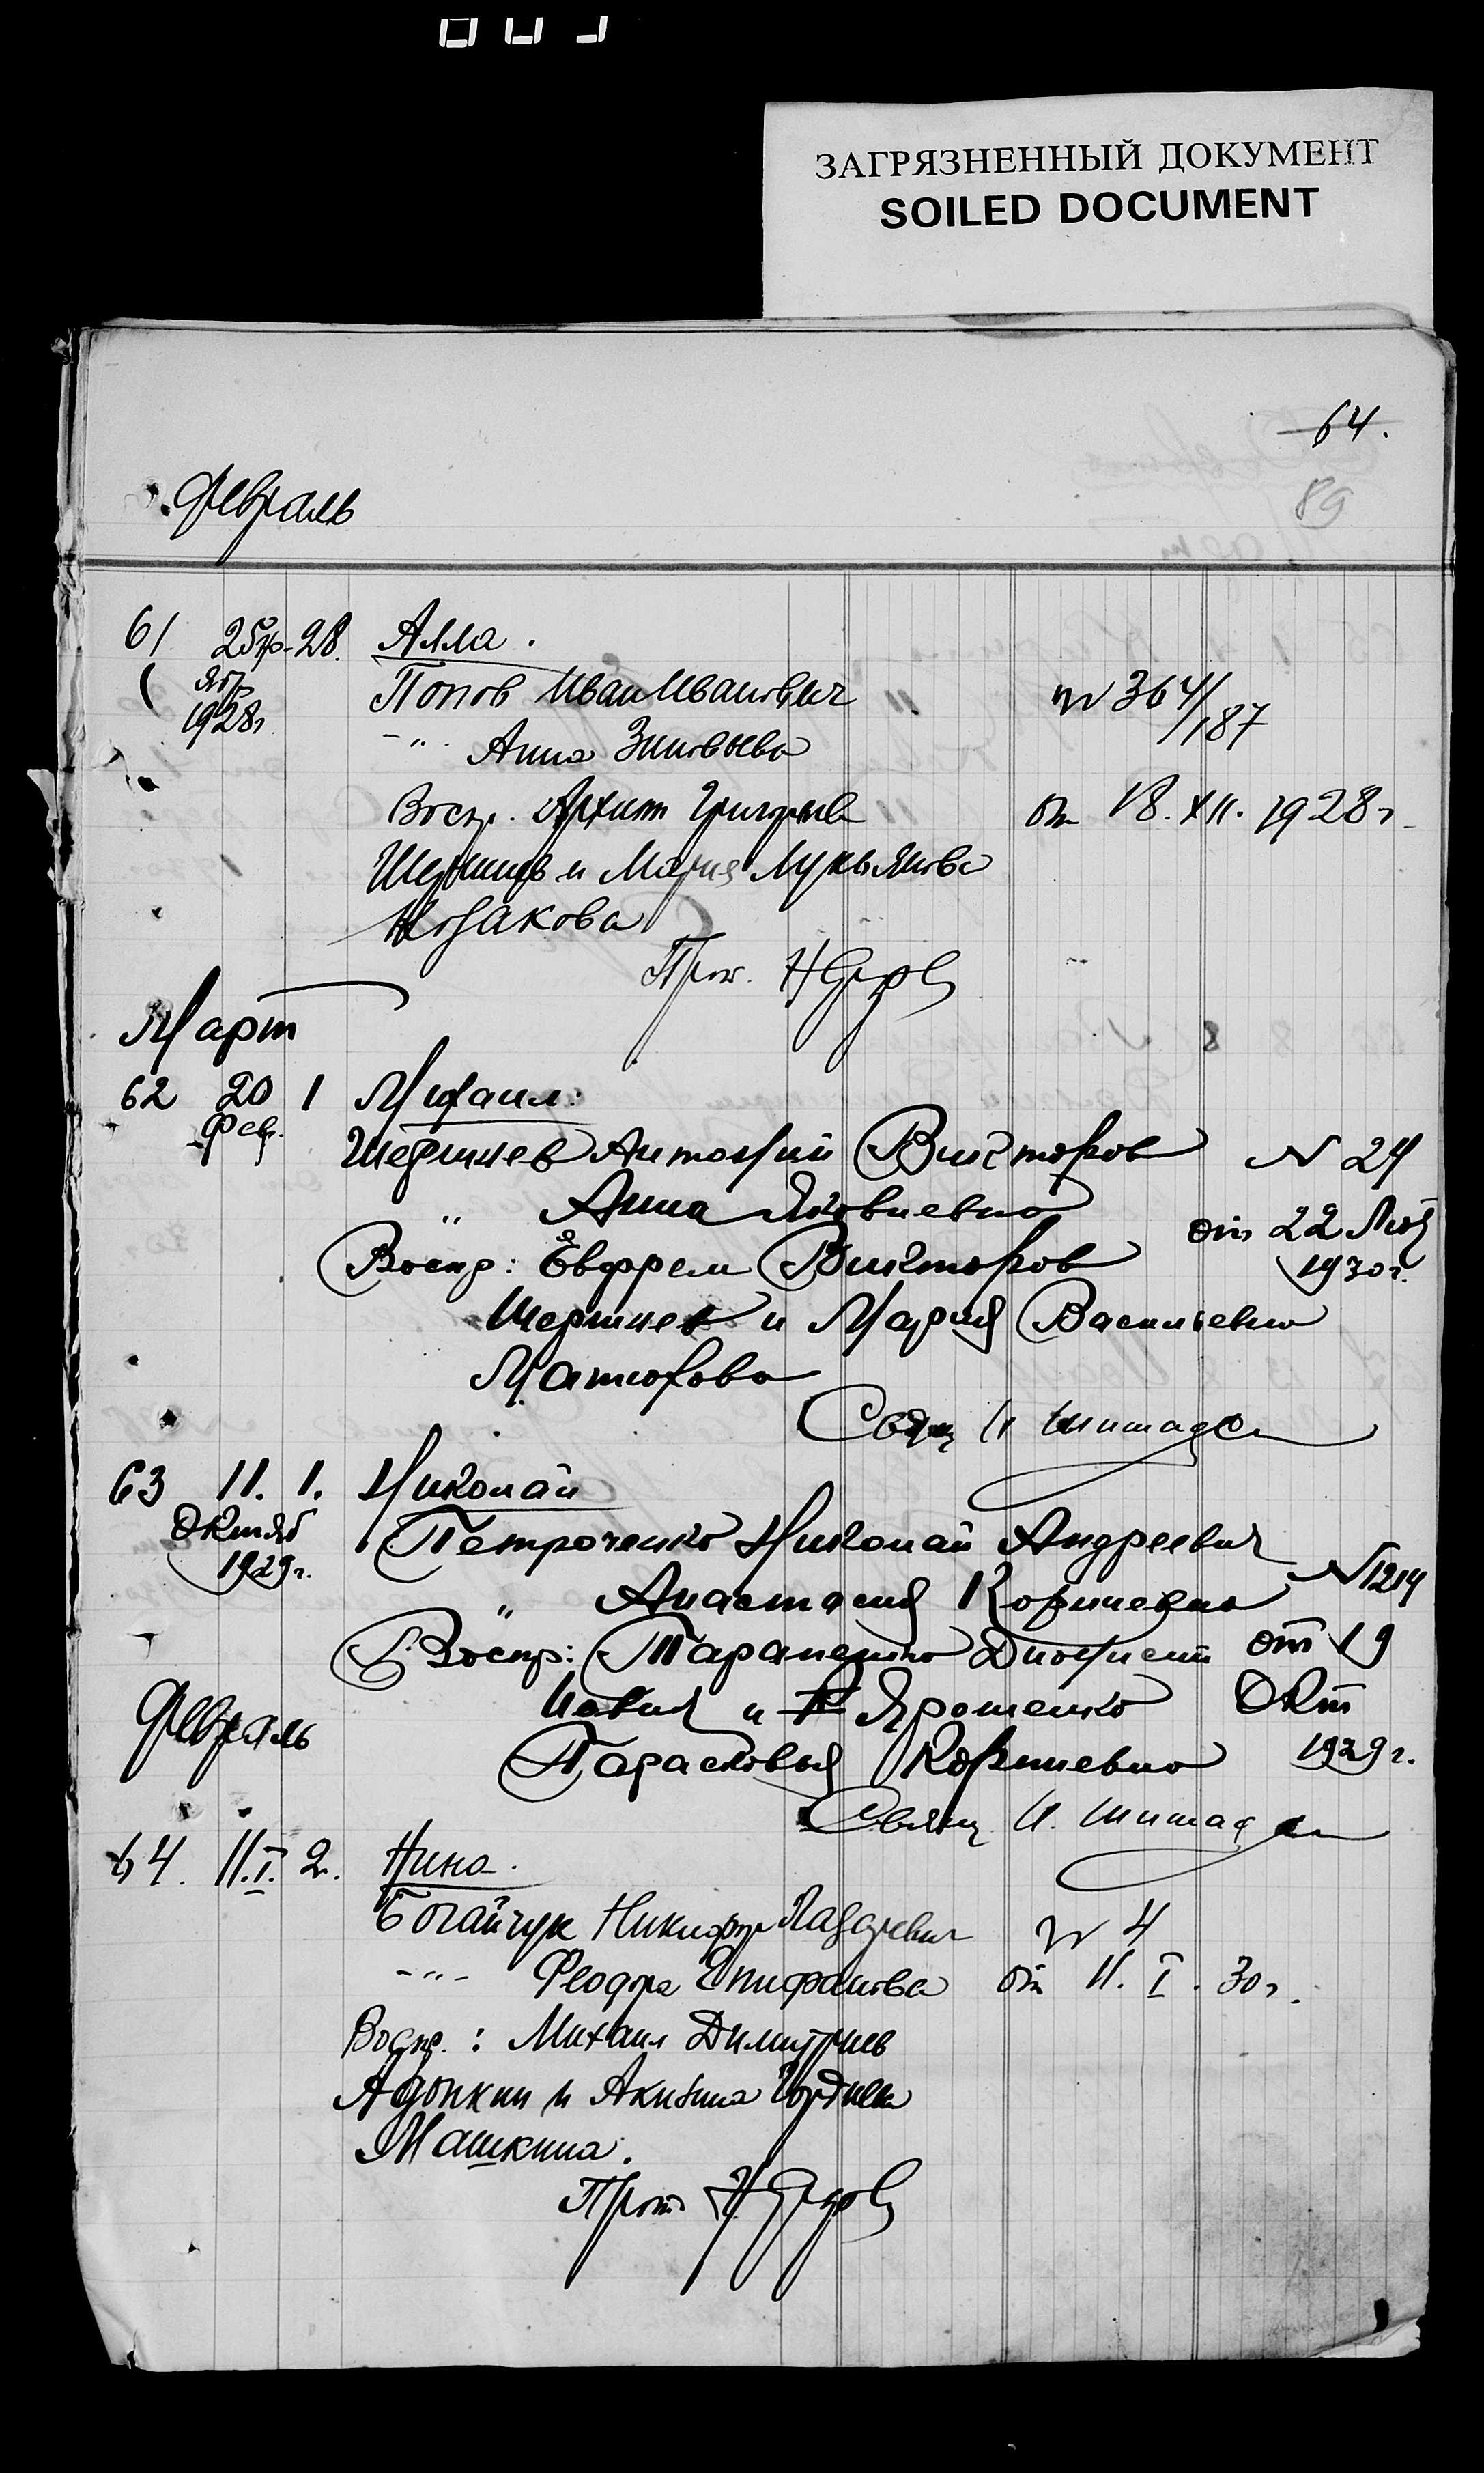 ЗАГРЯЗНЕННЫЙ ДОКУМЕНТ
SOILED DOCUMENT
64.
89
Февраль
61 28. Алла.
1928г Попов Иван Иванович № 364/187
-"- Анна Зиновьева
Воспр. Архип Григорьев от 18.XII.1928г.
и Мария Лукьянова
Козакова
Прот.
Март
62 20 1 Михаил:
Фев. Шершнев Антоний Викторов № 24
" Анна Яковлевна от 22
Воспр: Евфрем Викторов 1930г.
Шершнев и Мария Васильевна
Матюхова
Свящ И
63 11. 1. Николай
Октяб Петроченко Николай Андреевич
1929г. " Анастасия Корнеевна №1214
Воспр: Тараненко Дионисий от 19
и Ярошенко Окт
Февраль Парасковья Корнеевна 1929г.
Свящ И.
64. 11.I. 2. Нина.
Богайчук Никифор Лазаревич № 4
-"- Феодора Епифанова от 11.I.30г.
Воспр.: Михаил Димитриев
и Акилина Гордиева
Машкина.
Прот